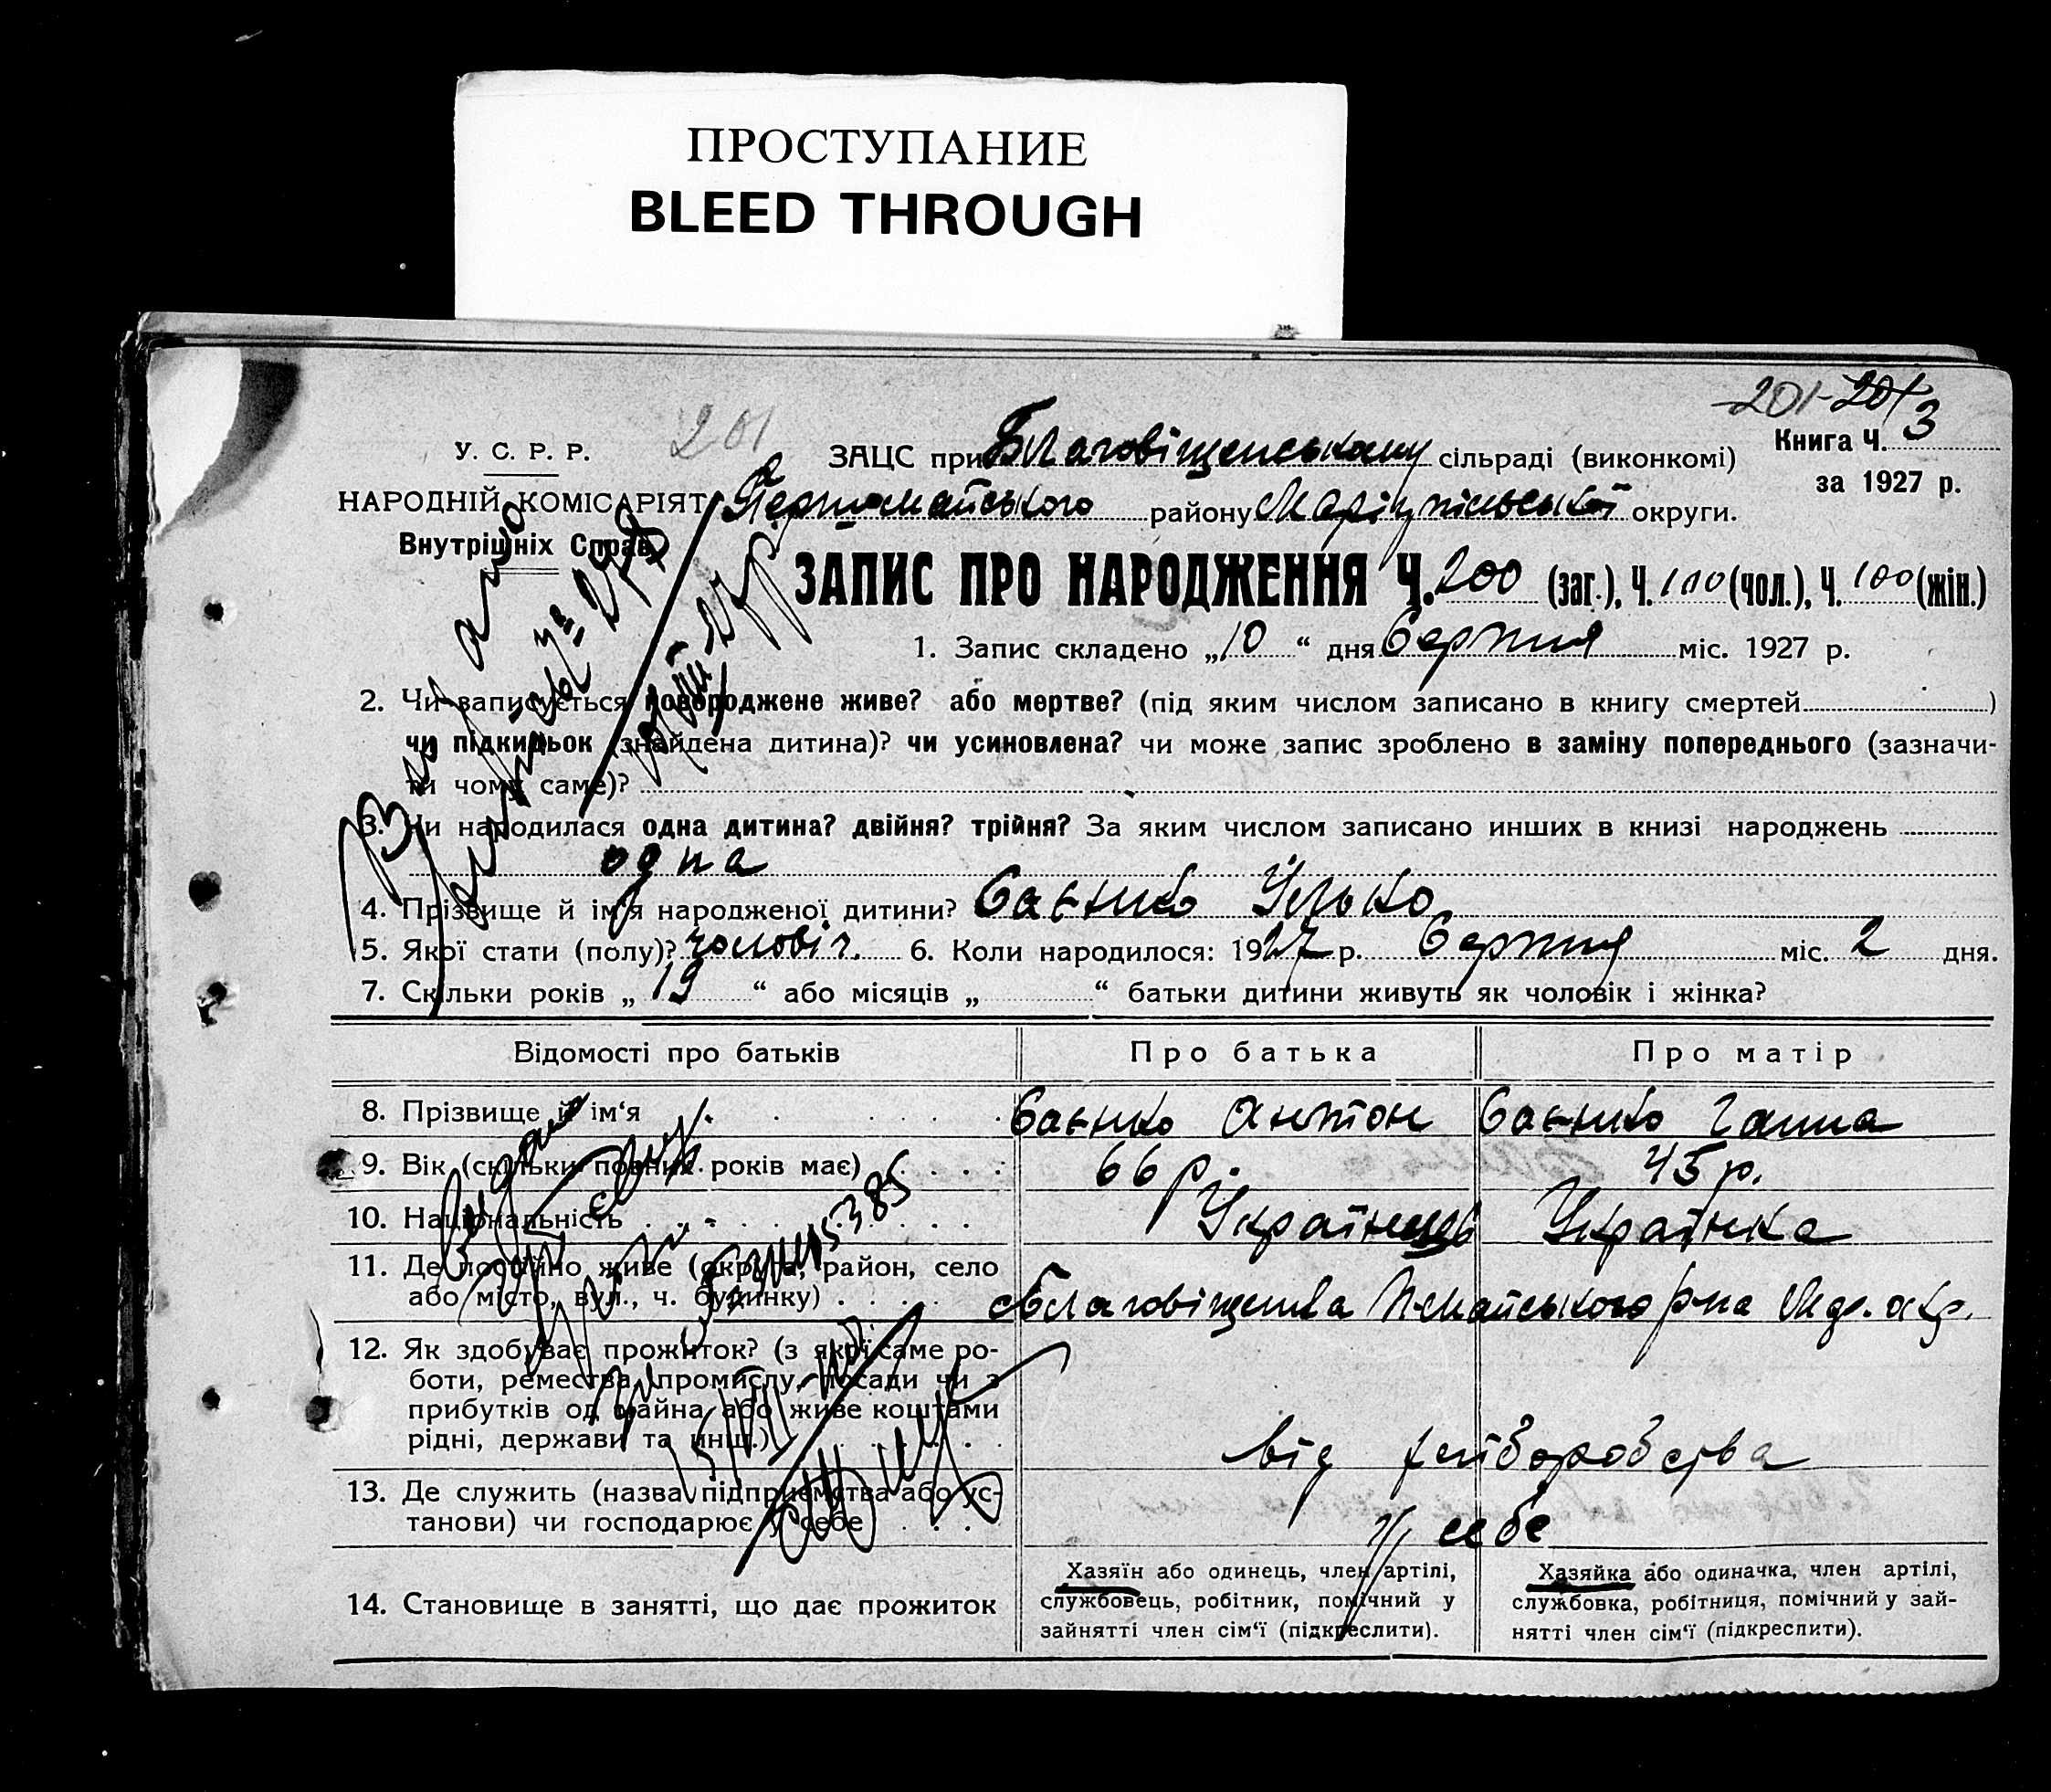 ПРОСТУПАНИЕ
BLEED THROUGH
201-201
201
У. С. Р. Р.
ЗАЦС при Благовіщенському сільраді (виконкомі)
Книга Ч. 3
за 1927 р.
НАРОДНІЙ КОМІСАРІЯТ
Внутрішніх Справ
Першомайського району Маріупільської округи.
ЗАПИС ПРО НАРОДЖЕННЯ Ч. 200 (заг.), Ч. 100 (чол.), Ч. 100 (жін.)
1. Запис складено „10“ дня Серпня міс. 1927 р.
2. Чи записується новороджене живе? або мертве? (під яким числом записано в книгу смертей )
чи підкидьок (знайдена дитина)? чи усиновлена? чи може запис зроблено в заміну попереднього (зазначи-
ти чому саме)?
3. Чи народилася одна дитина? двійня? трійня? За яким числом записано инших в книзі народжень
одна
4. Прізвище й ім'я народженої дитини? Саєнко Улько
5. Якої стати (полу)? чоловіч. 6. Коли народилося: 1927 р. Серпня міс. 2 дня.
7. Скільки років „19“ або місяців „ “ батьки дитини живуть як чоловік і жінка?
Відомості про батьків Про батька Про матір
8. Прізвище й ім‘я Саєнко Антон Саєнко Ганна
9. Вік (скільки повних років має) 66 р. 45 р.
10. Національність Українець Українка
11. Де постійно живе (округа, район, село
або місто, вул., ч. будинку)
Благовіщенка П-майського р-на Мар. окр.
12. Як здобуває прожиток? (з якої саме ро-
боти, ремества, промислу, посади чи з
прибутків од майна або живе коштами
рідні, держави та инш.)
від хліборобства
13. Де служить (назва підприємства або ус-
танови) чи господарює у себе
у себе
14. Становище в занятті, що дає прожиток
Хазяїн або одинець, член артілі,
службовець, робітник, помічний у
зайнятті член сім‘ї (підкреслити).
Хазяйка або одиначка, член артілі,
службовка, робітниця, помічний у зай-
нятті член сім‘ї (підкреслити).